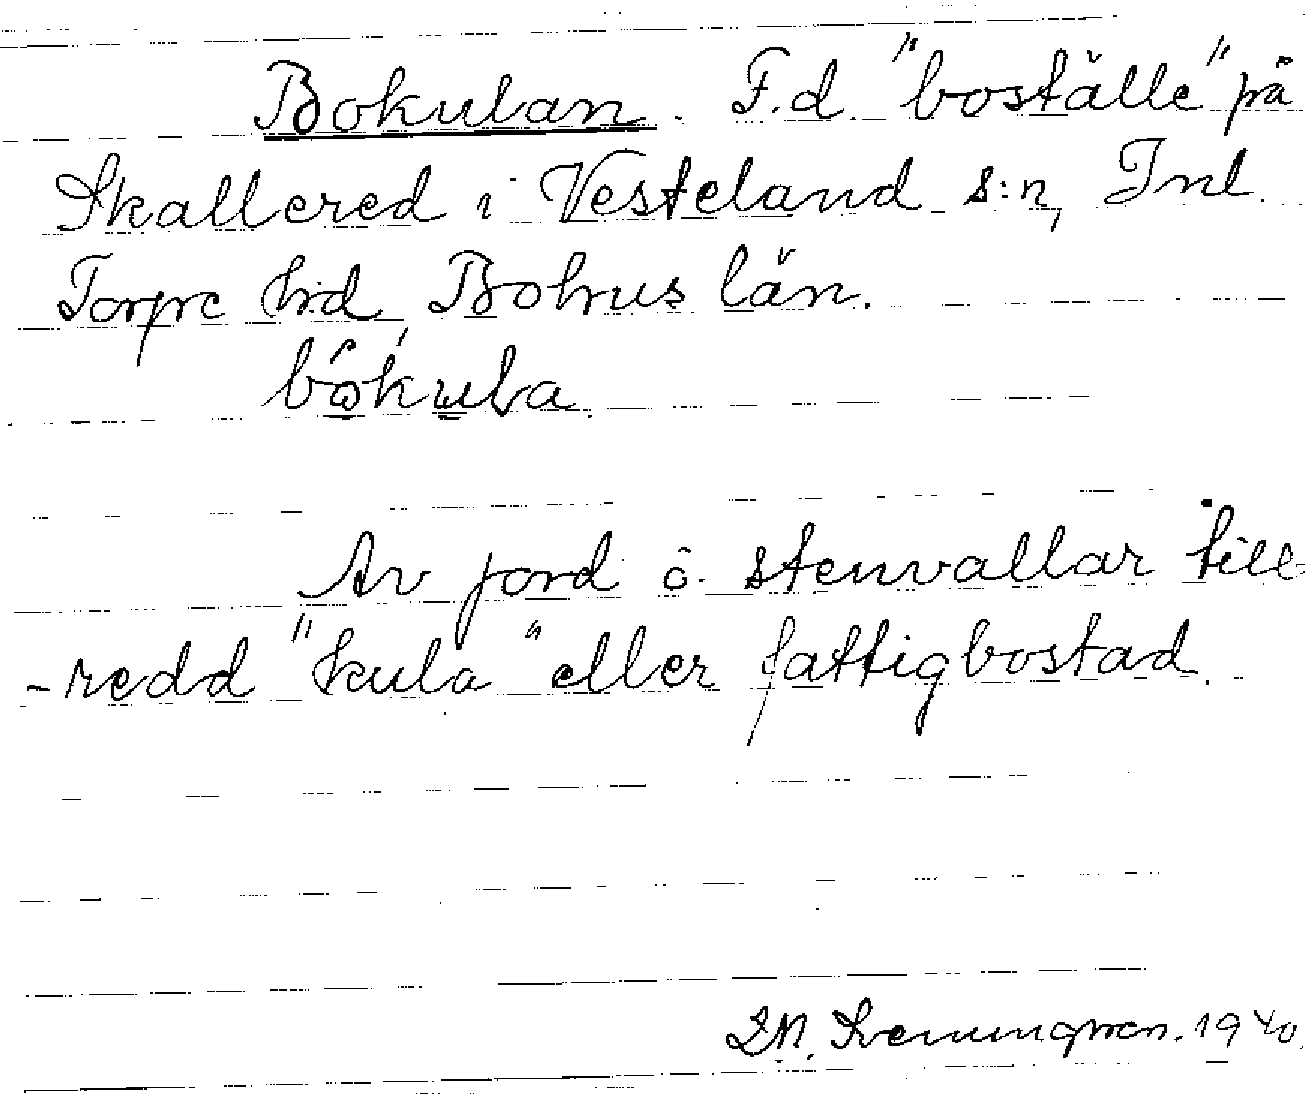 Bokulan. F.d. "boställe" på
Skallered i Vesteland s:n, Inl.
Torpe h:d, Bohus län.
bökula.
Av jord o. stenvallar till-
-redd "kula" eller fattigbostad.
1940.